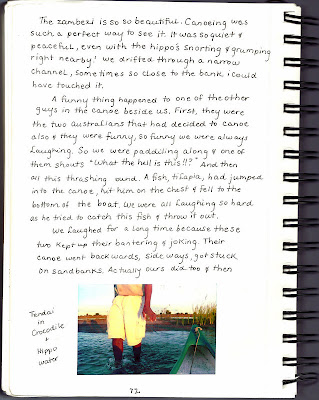 The zambezi is so so beautiful. Canoeing was
such a perfect way to see it. It was so quiet &
peaceful, even with the hippo's snorting & grumping
right nearby! We drifted through a narrow
channel, sometimes so close to the bank i could
have touched it.
A funny thing happened to one of the other
guys in the canoe beside us. First, they were
the two Australians that had decided to canoe
also & they were funny, so funny we were always
laughing. So we were paddling along & one of
them shouts "What the hell is this!!?" And then
all this thrashing ound. A fish, tilapia, had jumped
into the canoe, hit him on the chest & fell to the
bottom of the boat. We were all laughing so hard
as he tried to catch this fish & throw it out.
We laughed for a long time because these
two kept up their bantering & joking. Their
canoe went backwards, sideways, got stuck
on sandbanks. Actually ours did too & then
Tendai
in
Crocodile
+
Hippo
water
72.